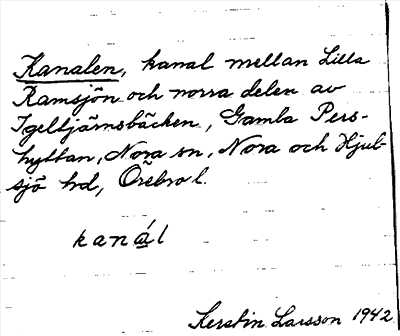 Kanalen, kanal mellan Lilla
Ramsjön och norra delen av
Igeltjärnsbäcken, Gamla Pers-
hyttan, Nora sn, Nora och Hjul-
sjö hd, Örebro l.
kanál
Kerstin Larsson 1942